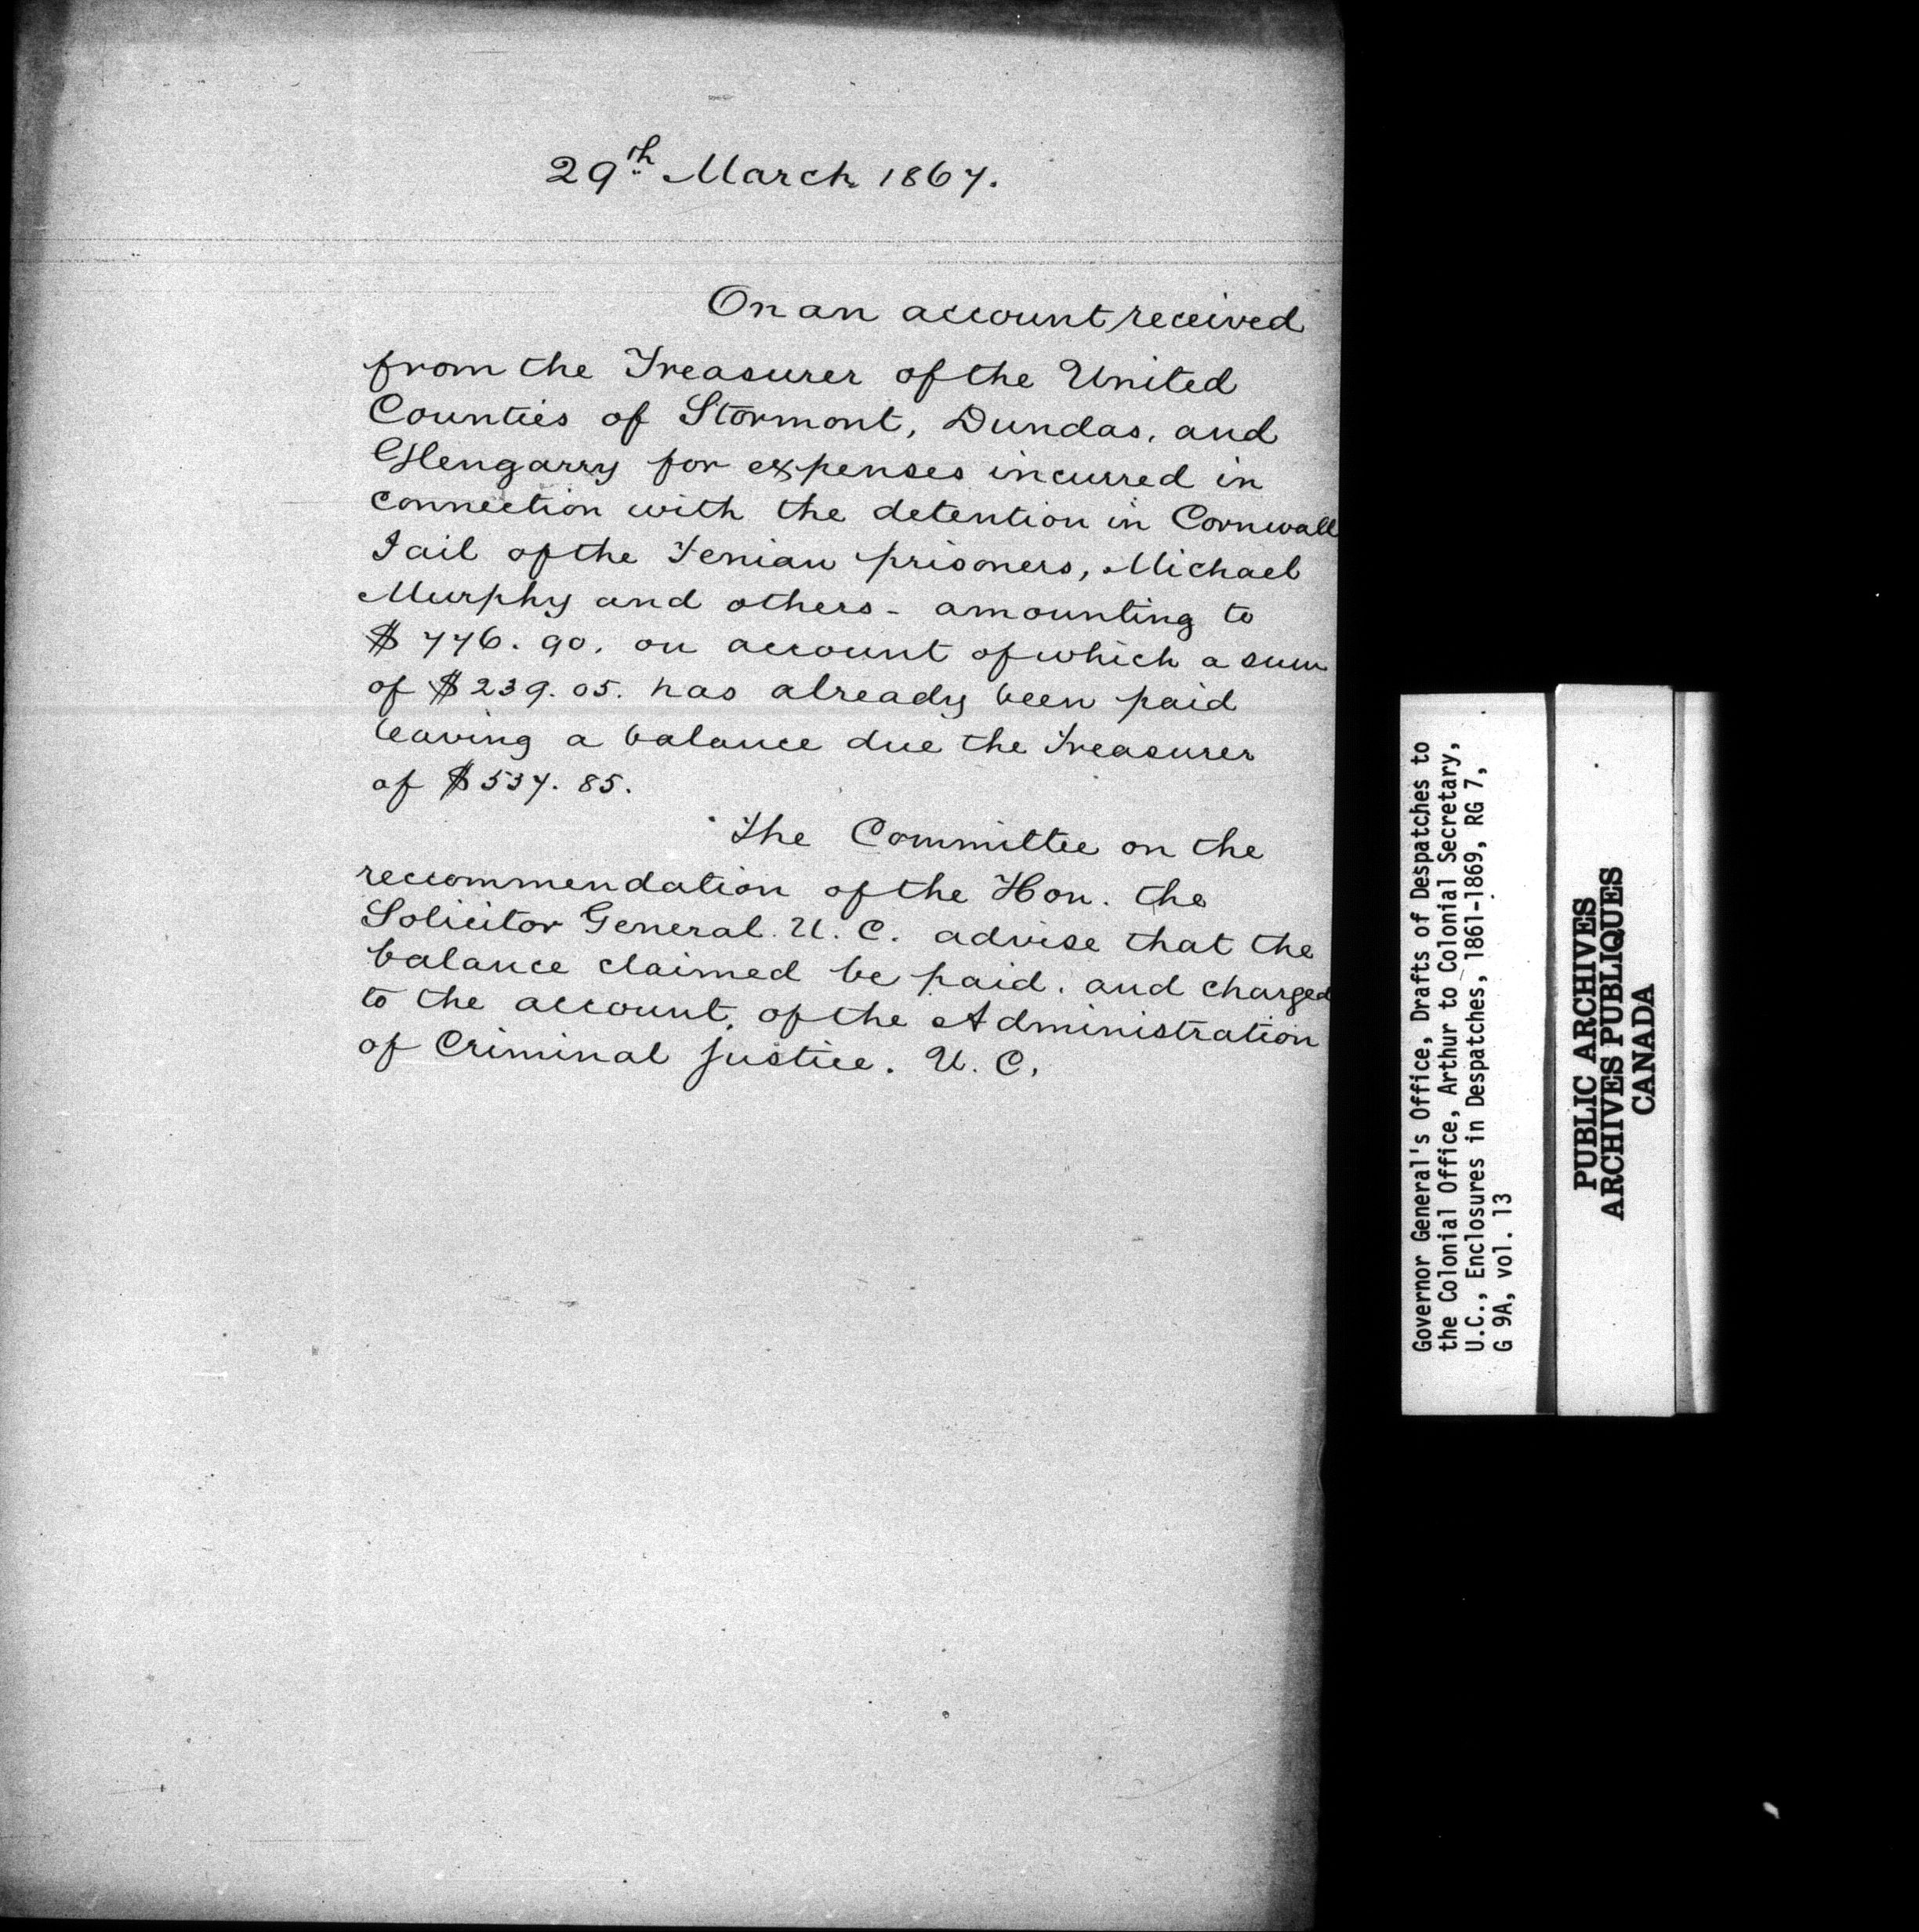 29th March 1867.
On an account received
from the Treasurer of the United
Counties of Stormont, Dundas, and
Glengarry for expenses incurred in
connection with the detention in Cornwall
Jail of the Fenian prisoners, Michael
Murphy and others - amounting to
$776.90. on account of which a sum
of $239.05. has already been paid
leaving a balance due the Treasurer
of $537.85.
The Committee on the
recommendation of the Hon. the
Solicitor General. U. C. advise that the
balance claimed be paid. and charged
to the account, of the Administration
of Criminal justice. U. C.
Governor General's Office, Drafts of Despatches to
the Colonial Office, Arthur to Colonial Secretary,
U.C., Enclosures in Despatches, 1861-1869, RG 7,
G 9A, vol. 13
PUBLIC ARCHIVES
ARCHIVES PUBLIQUES
CANADA